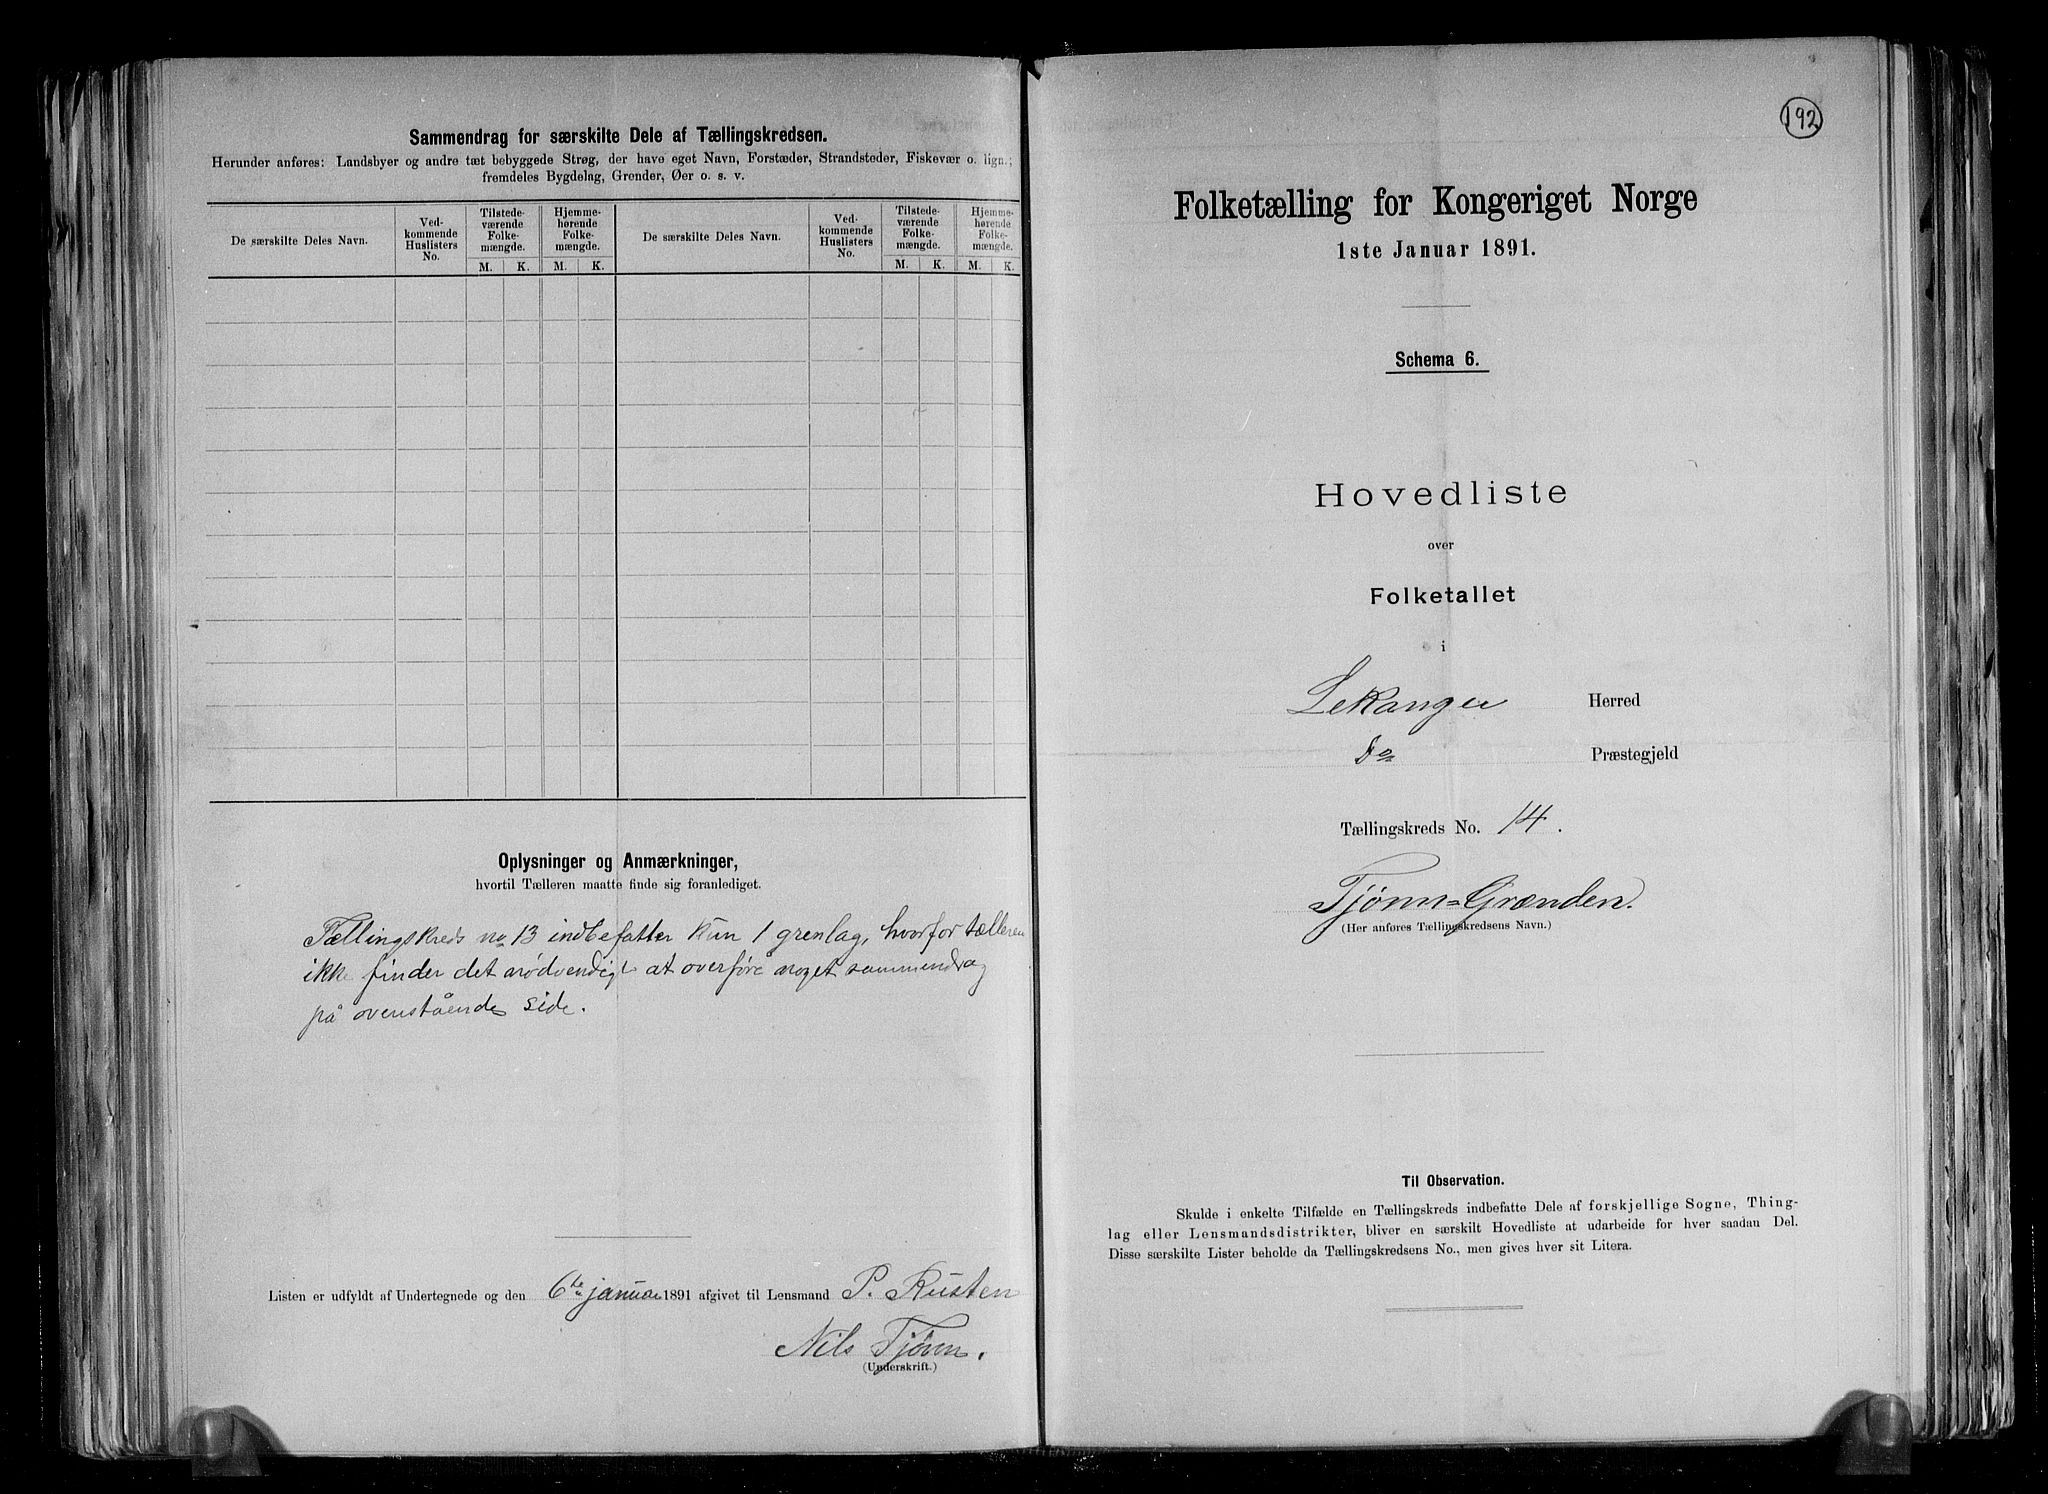 Sammendrag for særskilte Dele af Tællingskredsen.
Herunder anføres: Landsbyer og andre tæt bebyggede Strøg, der have eget Navn, Forstæder, Strandsteder, Fiskevær o. lign.;
fremdeles Bygdelag, Grender, Øer o. s. v.
De særskilte Deles Navn.
Ved-
kommende
Huslisters
No.
Tilstede-
værende
Folke-
mængde.
Hjemme-
hørende
Folke-
mængde.
De særskilte Deles Navn.
Ved-
kommende
Huslisters
No.
Tilstede-
værende
Folke-
mængde.
Hjemme-
hørende
Folke-
mængde.
M. K. M. K. M. K. M. K.
Oplysninger og Anmærkninger,
hvortil Tælleren maatte finde sig foranlediget.
Tællingskreds no 13 indbefatter kun 1 grenlag, hvorfor tælleren
ikke finder det nødvendigt at overføre noget sammendrag
på ovenstående side.
Listen er udfyldt af Undertegnede og den 6te januar 1891 afgivet til Lensmand P. Rusten
Nils Tjønn.
(Underskrift.)
192
Folketælling for Kongeriget Norge
1ste Januar 1891.
Schema 6.
Hovedliste
over
Folketallet
i
Lekanger Herred
do Præstegjeld
Tællingskreds No. 14.
Tjønn=Grænden.
(Her anføres Tællingskredsens Navn.)
Til Observation.
Skulde i enkelte Tilfælde en Tællingskreds indbefatte Dele af forskjellige Sogne, Thing-
lag eller Lensmandsdistrikter, bliver en særskilt Hovedliste at udarbeide for hver saadan Del.
Disse særskilte Lister beholde da Tællingskredsens No., men gives hver sit Litera.